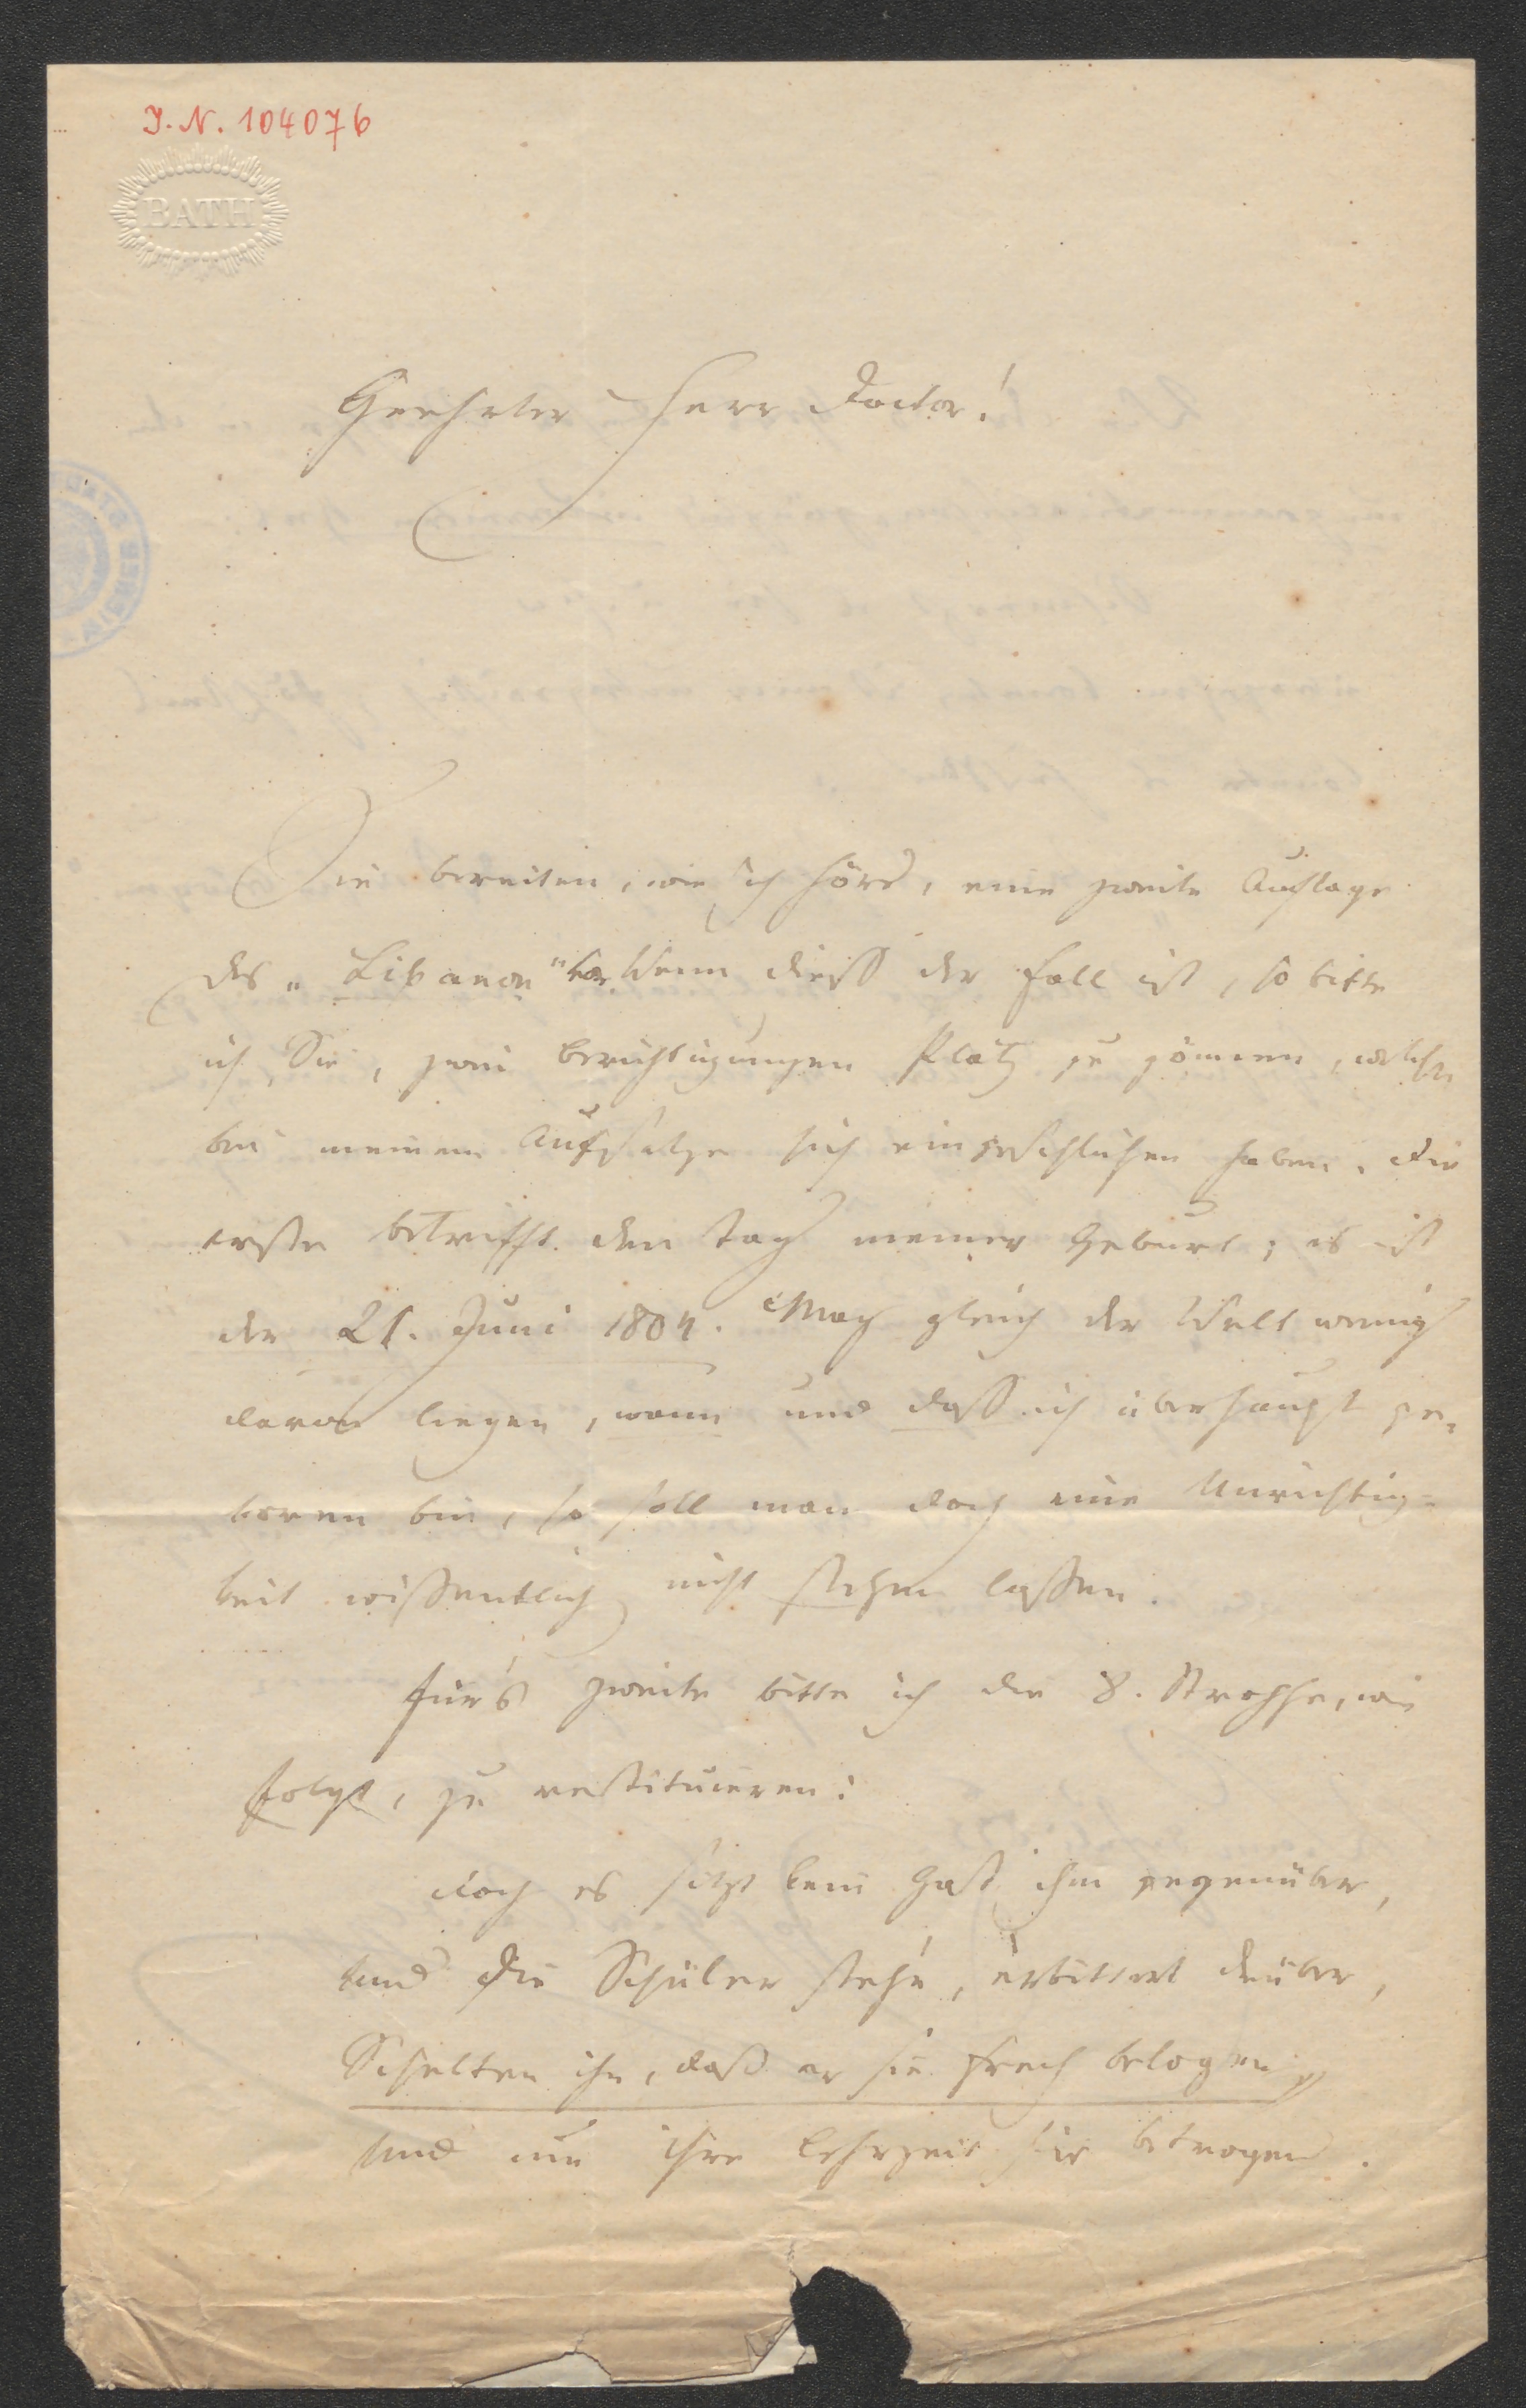 J. N. 104076
BATH
Geehrter Herr Doctor!
Sie bereiten, wie ich höre, eine zweite Auflage
des „Libanon" vor. Wenn dieß der Fall ist, so bitte
ich Sie, zwei Berichtigungen Platz zu gönnen, welche
bei meinem Aufsatze sich eingeschlichen haben. Die
erste betrifft den Tag meiner Geburt; es ist
der 21. Juni 1804. Mag gleich der Welt wenig
daran liegen, wann und daß ich überhaupt ge-
boren bin, so soll man doch eine Unrichtig=
keit wissentlich nicht stehen lassen.
Für's zweite bitte ich die 8. Strophe, wie
folgt, zu restituieren:
Doch es sitzt kein Gast ihm gegenüber,
Und die Schüler steh'n, erbittert drüber,
Schelten ihn, daß er sie frech belogen
Und um ihre Lehrzeit sie betrogen.